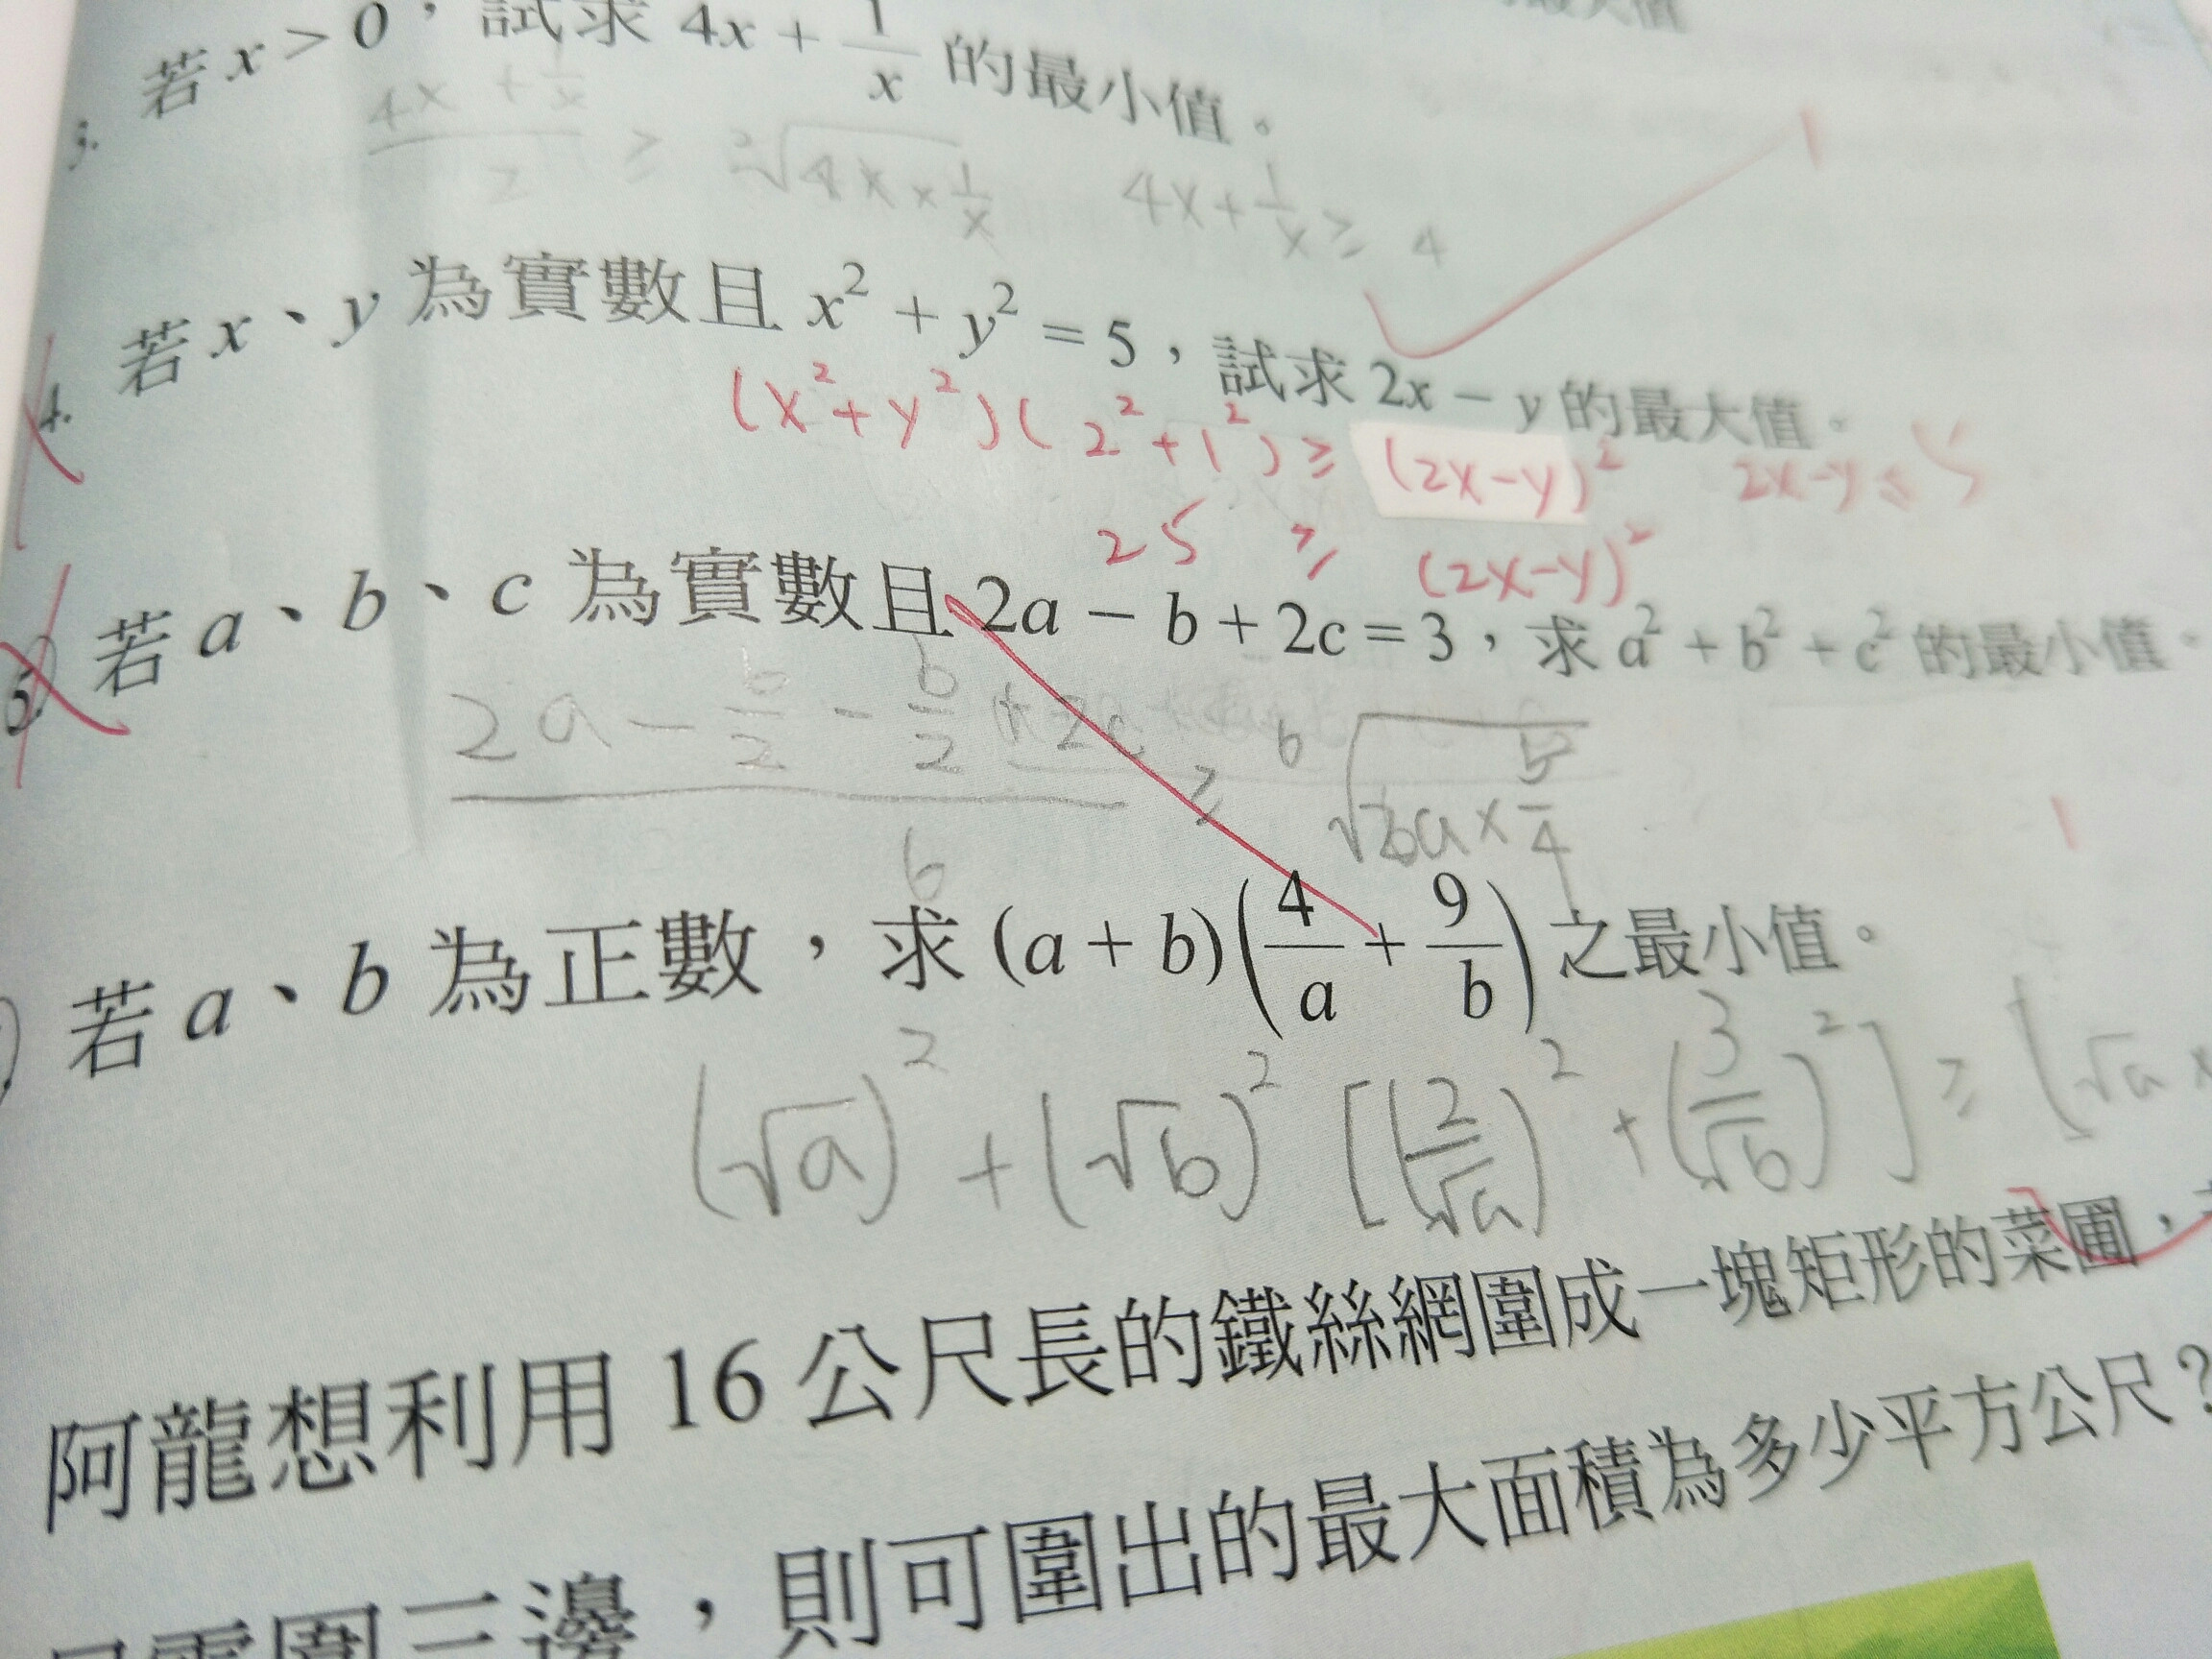 3. 若 x > 0，試求 4x + 1/x 的最小值。
(4x + 1/x)/2 ≥ ²√(4x × 1/x) 4x + 1/x ≥ 4
4. 若 x、y 為實數且 x² + y² = 5，試求 2x − y 的最大值。
(x² + y²)(2² + 1²) ≥ (2x−y)² 2x−y ≤ 5
25 ≥ (2x−y)²
5. 若 a、b、c 為實數且 2a − b + 2c = 3，求 a² + b² + c² 的最小值。
2a − b/2 − b/2 + 2c ≥
6
若 a、b 為正數，求 (a + b)(4/a + 9/b) 之最小值。
(√a)² + (√b)² [(2/√a)² + (3/√b)²] ≥ [√a ×
阿龍想利用 16 公尺長的鐵絲網圍成一塊矩形的菜圃，
圍三邊，則可圍出的最大面積為多少平方公尺？